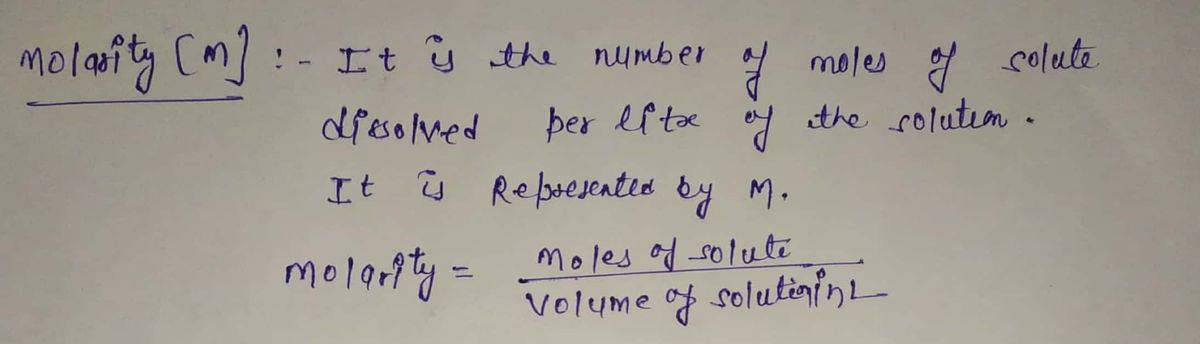 Molarity [M] :- It is the number of moles of solute
dissolved per litre of the solution.
It is Represented by M.
Molarity = Moles of solute
Volume of solution in L